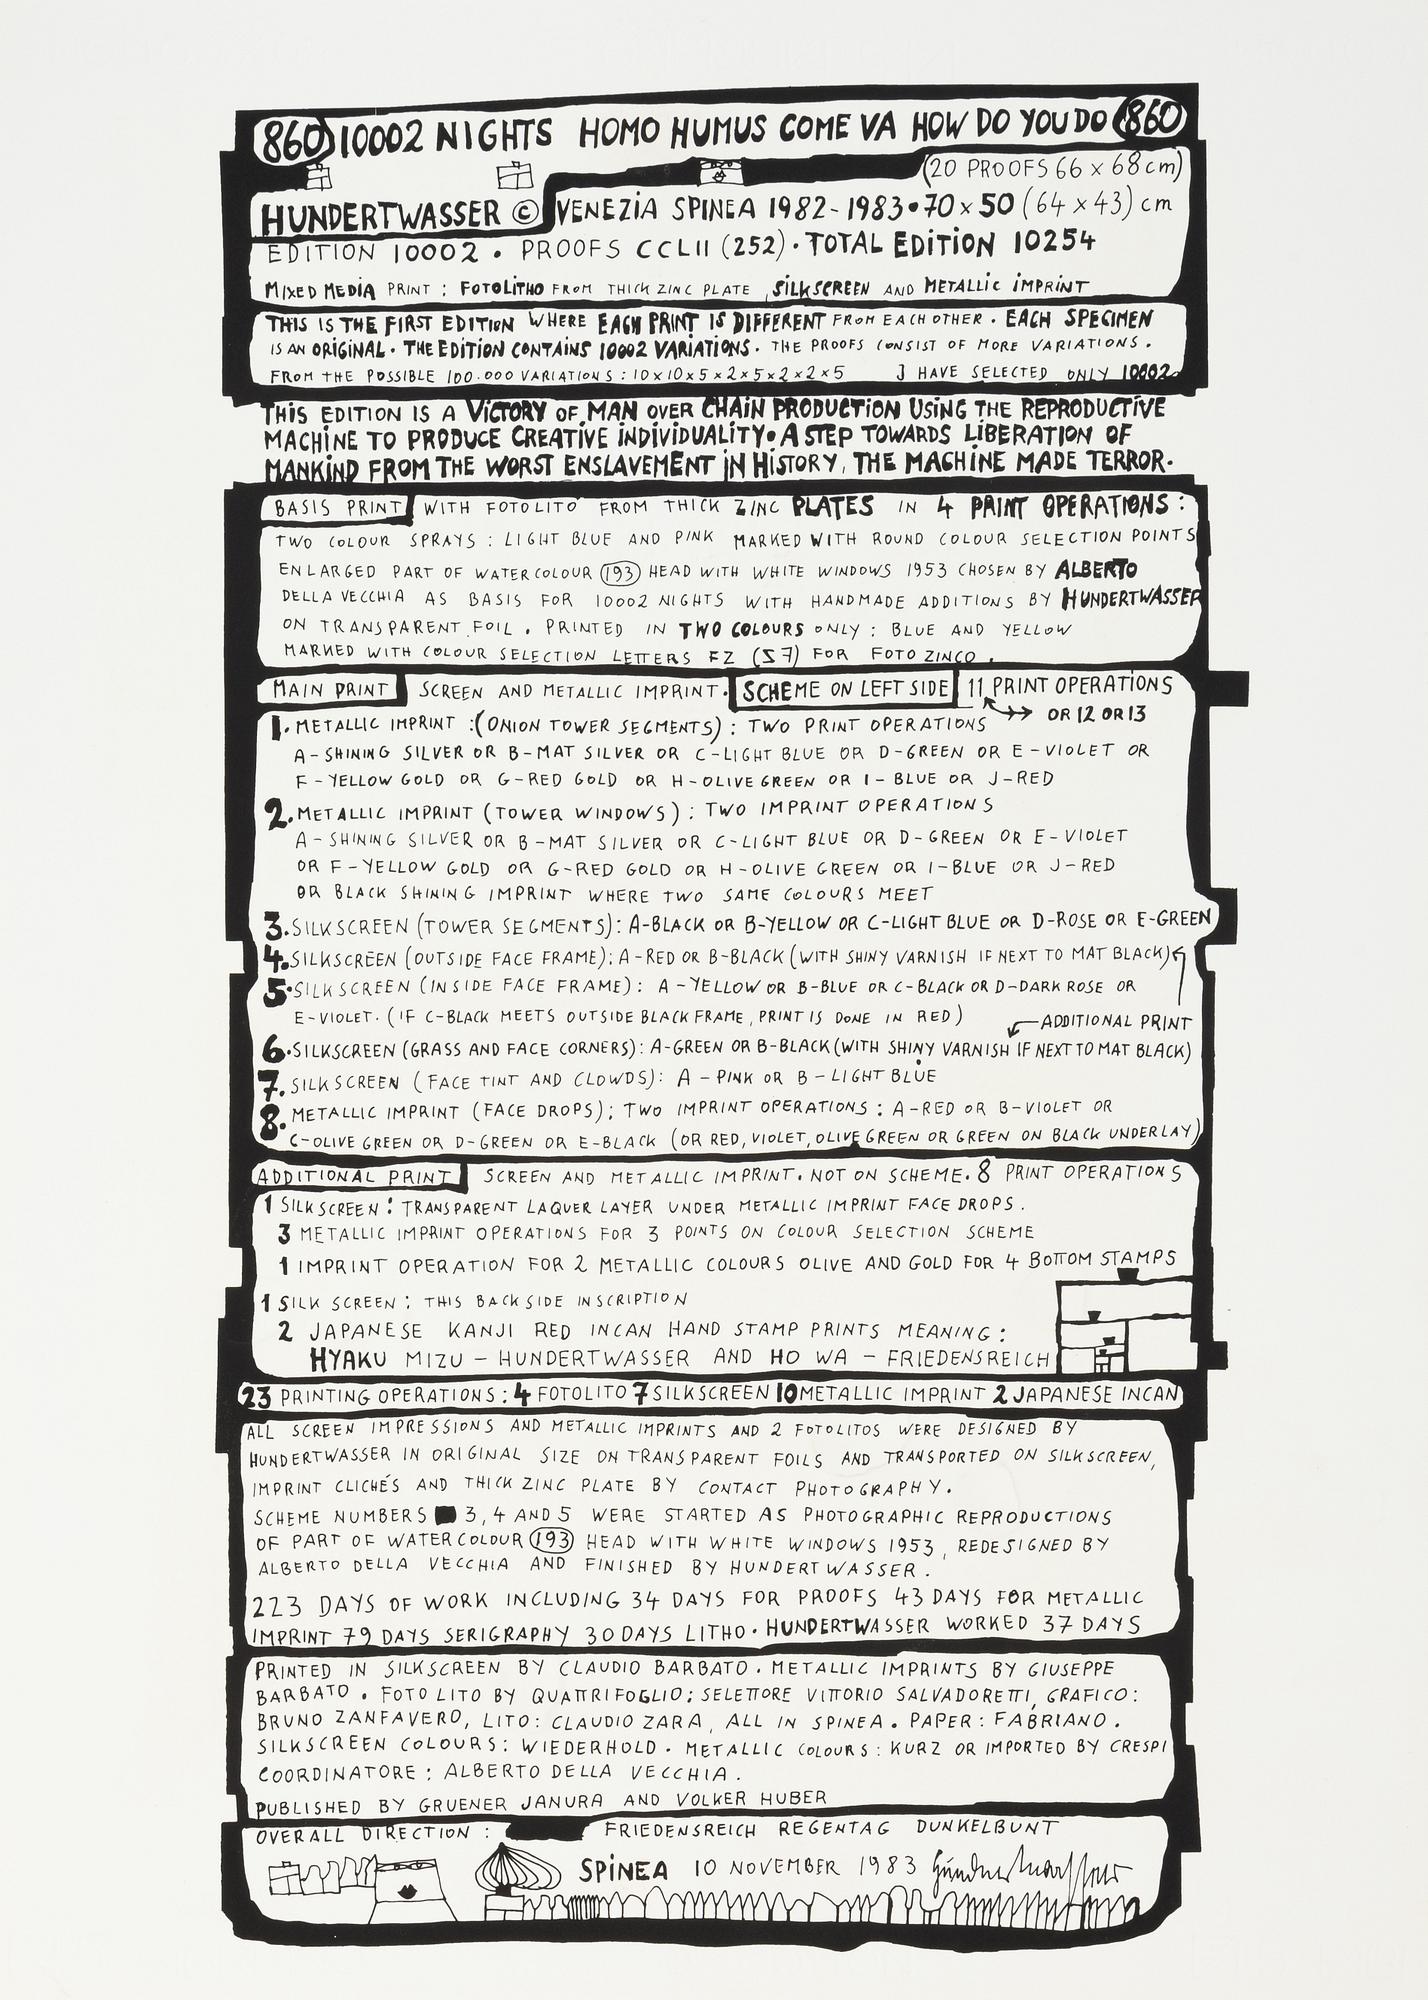 860 10002 NIGHTS HOMO HUMUS COME VA HOW DO YOU DO 860
(20 PROOFS 66 x 68 cm)
HUNDERTWASSER © VENEZIA SPINEA 1982-1983 • 70 x 50 (64 x 43) cm
EDITION 10002 • PROOFS CCLII (252) • TOTAL EDITION 10254
MIXED MEDIA PRINT : FOTOLITHO FROM THICK ZINC PLATE, SILKSCREEN AND METALLIC IMPRINT
THIS IS THE FIRST EDITION WHERE EACH PRINT IS DIFFERENT FROM EACH OTHER. EACH SPECIMEN
IS AN ORIGINAL. THE EDITION CONTAINS 10002 VARIATIONS. THE PROOFS CONSIST OF MORE VARIATIONS.
FROM THE POSSIBLE 100.000 VARIATIONS : 10x10x5x2x5x2x2x5 I HAVE SELECTED ONLY 10002
THIS EDITION IS A VICTORY OF MAN OVER CHAIN PRODUCTION USING THE REPRODUCTIVE
MACHINE TO PRODUCE CREATIVE INDIVIDUALITY • A STEP TOWARDS LIBERATION OF
MANKIND FROM THE WORST ENSLAVEMENT IN HISTORY, THE MACHINE MADE TERROR.
BASIS PRINT WITH FOTOLITO FROM THICK ZINC PLATES IN 4 PRINT OPERATIONS :
TWO COLOUR SPRAYS : LIGHT BLUE AND PINK MARKED WITH ROUND COLOUR SELECTION POINTS
ENLARGED PART OF WATERCOLOUR (193) HEAD WITH WHITE WINDOWS 1953 CHOSEN BY ALBERTO
DELLA VECCHIA AS BASIS FOR 10002 NIGHTS WITH HANDMADE ADDITIONS BY HUNDERTWASSER
ON TRANSPARENT FOIL. PRINTED IN TWO COLOURS ONLY : BLUE AND YELLOW
MARKED WITH COLOUR SELECTION LETTERS FZ (S7) FOR FOTO ZINCO.
MAIN PRINT SCREEN AND METALLIC IMPRINT. SCHEME ON LEFT SIDE 11 PRINT OPERATIONS
OR 12 OR 13
1. METALLIC IMPRINT : (ONION TOWER SEGMENTS) : TWO PRINT OPERATIONS
A-SHINING SILVER OR B-MAT SILVER OR C-LIGHT BLUE OR D-GREEN OR E-VIOLET OR
F-YELLOW GOLD OR G-RED GOLD OR H-OLIVE GREEN OR I-BLUE OR J-RED
2. METALLIC IMPRINT (TOWER WINDOWS) : TWO IMPRINT OPERATIONS
A-SHINING SILVER OR B-MAT SILVER OR C-LIGHT BLUE OR D-GREEN OR E-VIOLET
OR F-YELLOW GOLD OR G-RED GOLD OR H-OLIVE GREEN OR I-BLUE OR J-RED
OR BLACK SHINING IMPRINT WHERE TWO SAME COLOURS MEET
3. SILKSCREEN (TOWER SEGMENTS): A-BLACK OR B-YELLOW OR C-LIGHT BLUE OR D-ROSE OR E-GREEN
4. SILKSCREEN (OUTSIDE FACE FRAME): A-RED OR B-BLACK (WITH SHINY VARNISH IF NEXT TO MAT BLACK)
5. SILKSCREEN (INSIDE FACE FRAME): A-YELLOW OR B-BLUE OR C-BLACK OR D-DARK ROSE OR
E-VIOLET. (IF C-BLACK MEETS OUTSIDE BLACK FRAME, PRINT IS DONE IN RED)
ADDITIONAL PRINT
6. SILKSCREEN (GRASS AND FACE CORNERS): A-GREEN OR B-BLACK (WITH SHINY VARNISH IF NEXT TO MAT BLACK)
7. SILKSCREEN (FACE TINT AND CLOWDS): A-PINK OR B-LIGHT BLUE
8. METALLIC IMPRINT (FACE DROPS); TWO IMPRINT OPERATIONS : A-RED OR B-VIOLET OR
C-OLIVE GREEN OR D-GREEN OR E-BLACK (OR RED, VIOLET, OLIVE GREEN OR GREEN ON BLACK UNDERLAY)
ADDITIONAL PRINT SCREEN AND METALLIC IMPRINT. NOT ON SCHEME. 8 PRINT OPERATIONS
1 SILKSCREEN : TRANSPARENT LAQUER LAYER UNDER METALLIC IMPRINT FACE DROPS.
3 METALLIC IMPRINT OPERATIONS FOR 3 POINTS ON COLOUR SELECTION SCHEME
1 IMPRINT OPERATION FOR 2 METALLIC COLOURS OLIVE AND GOLD FOR 4 BOTTOM STAMPS
1 SILK SCREEN : THIS BACKSIDE INSCRIPTION
2 JAPANESE KANJI RED INCAN HAND STAMP PRINTS MEANING :
HYAKU MIZU - HUNDERTWASSER AND HO WA - FRIEDENSREICH
23 PRINTING OPERATIONS : 4 FOTOLITO 7 SILKSCREEN 10 METALLIC IMPRINT 2 JAPANESE INCAN
ALL SCREEN IMPRESSIONS AND METALLIC IMPRINTS AND 2 FOTOLITOS WERE DESIGNED BY
HUNDERTWASSER IN ORIGINAL SIZE ON TRANSPARENT FOILS AND TRANSPORTED ON SILKSCREEN,
IMPRINT CLICHÉS AND THICK ZINC PLATE BY CONTACT PHOTOGRAPHY.
SCHEME NUMBERS 3, 4 AND 5 WERE STARTED AS PHOTOGRAPHIC REPRODUCTIONS
OF PART OF WATERCOLOUR (193) HEAD WITH WHITE WINDOWS 1953, REDESIGNED BY
ALBERTO DELLA VECCHIA AND FINISHED BY HUNDERTWASSER.
223 DAYS OF WORK INCLUDING 34 DAYS FOR PROOFS 43 DAYS FOR METALLIC
IMPRINT 79 DAYS SERIGRAPHY 30 DAYS LITHO • HUNDERTWASSER WORKED 37 DAYS
PRINTED IN SILKSCREEN BY CLAUDIO BARBATO. METALLIC IMPRINTS BY GIUSEPPE
BARBATO. FOTOLITO BY QUATTRIFOGLIO; SELETTORE VITTORIO SALVADORETTI, GRAFICO:
BRUNO ZANFAVERO, LITO: CLAUDIO ZARA, ALL IN SPINEA. PAPER : FABRIANO.
SILKSCREEN COLOURS: WIEDERHOLD. METALLIC COLOURS : KURZ OR IMPORTED BY CRESPI
COORDINATORE : ALBERTO DELLA VECCHIA.
PUBLISHED BY GRUENER JANURA AND VOLKER HUBER
OVERALL DIRECTION : FRIEDENSREICH REGENTAG DUNKELBUNT
SPINEA 10 NOVEMBER 1983 Hundertwasser